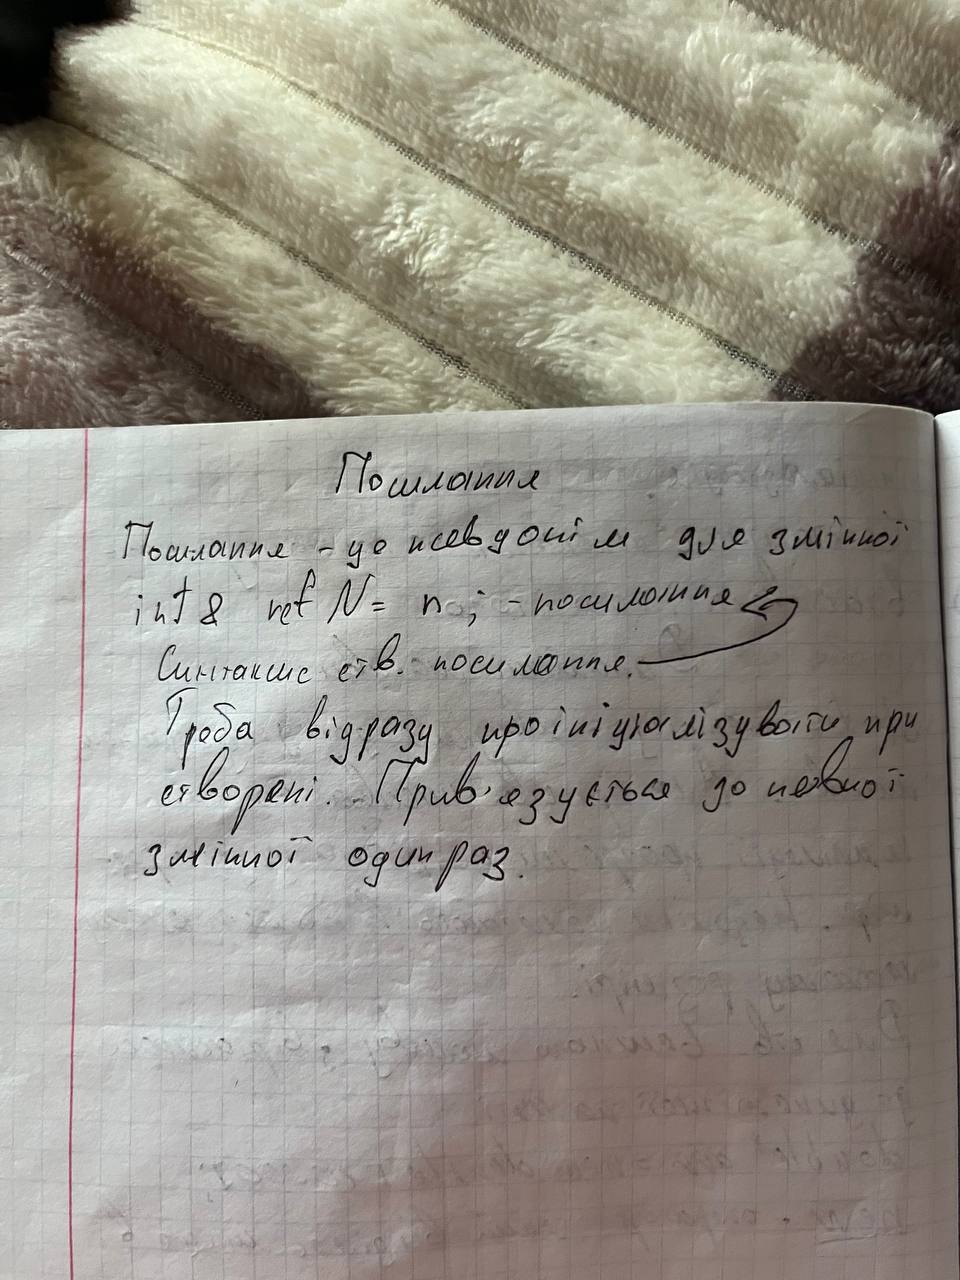 Посилання
Посилання - це псевдонім для змінної
int& refN = n; - посилання
Синтаксис ств. посилання.
Треба відразу проініціалізувати при
створені. Прив'язується до певної
змінної один раз.